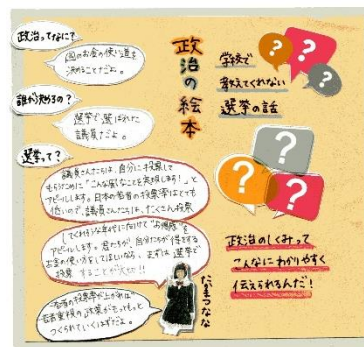 政治ってなに?
国のお金の使い道を
決めることだよ。
誰が決めるの?
選挙で選ばれた
議員だよ。
選挙って?
議員さんたちは、自分に投票して
もらうために「こんな風なことを実現します!」と
アピールします。日本の若者の投票率はとても
低いので、議員さんたちは、たくさん投票
してくれそうな年代に向けて"お得感"を
アピールします。君たちが、自分たちが得をする
お金の使い方をしてほしいなら、まずは選挙で
投票することが大切!!
若者の投票率が上がれば
若者重視の政策がもっともっと
つくられていくはずだよ。
たかまつなな
政治の絵本
学校で
教えてくれない
選挙の話
?
?
?
?
?
?
政治のしくみって
こんなにわかりやすく
伝えられるんだ!